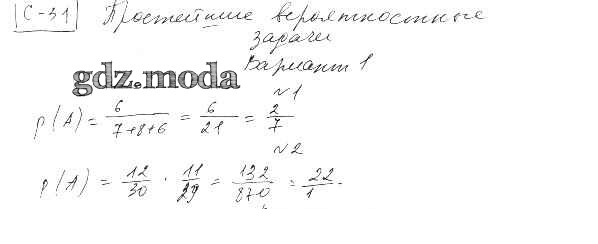 С-31 Простейшие вероятностные
задачи
Вариант 1
gdz.moda
№1
p(A) = 6/(7+8+6) = 6/21 = 2/7
№2
p(A) = 12/30 · 11/29 = 132/870 = 22/1